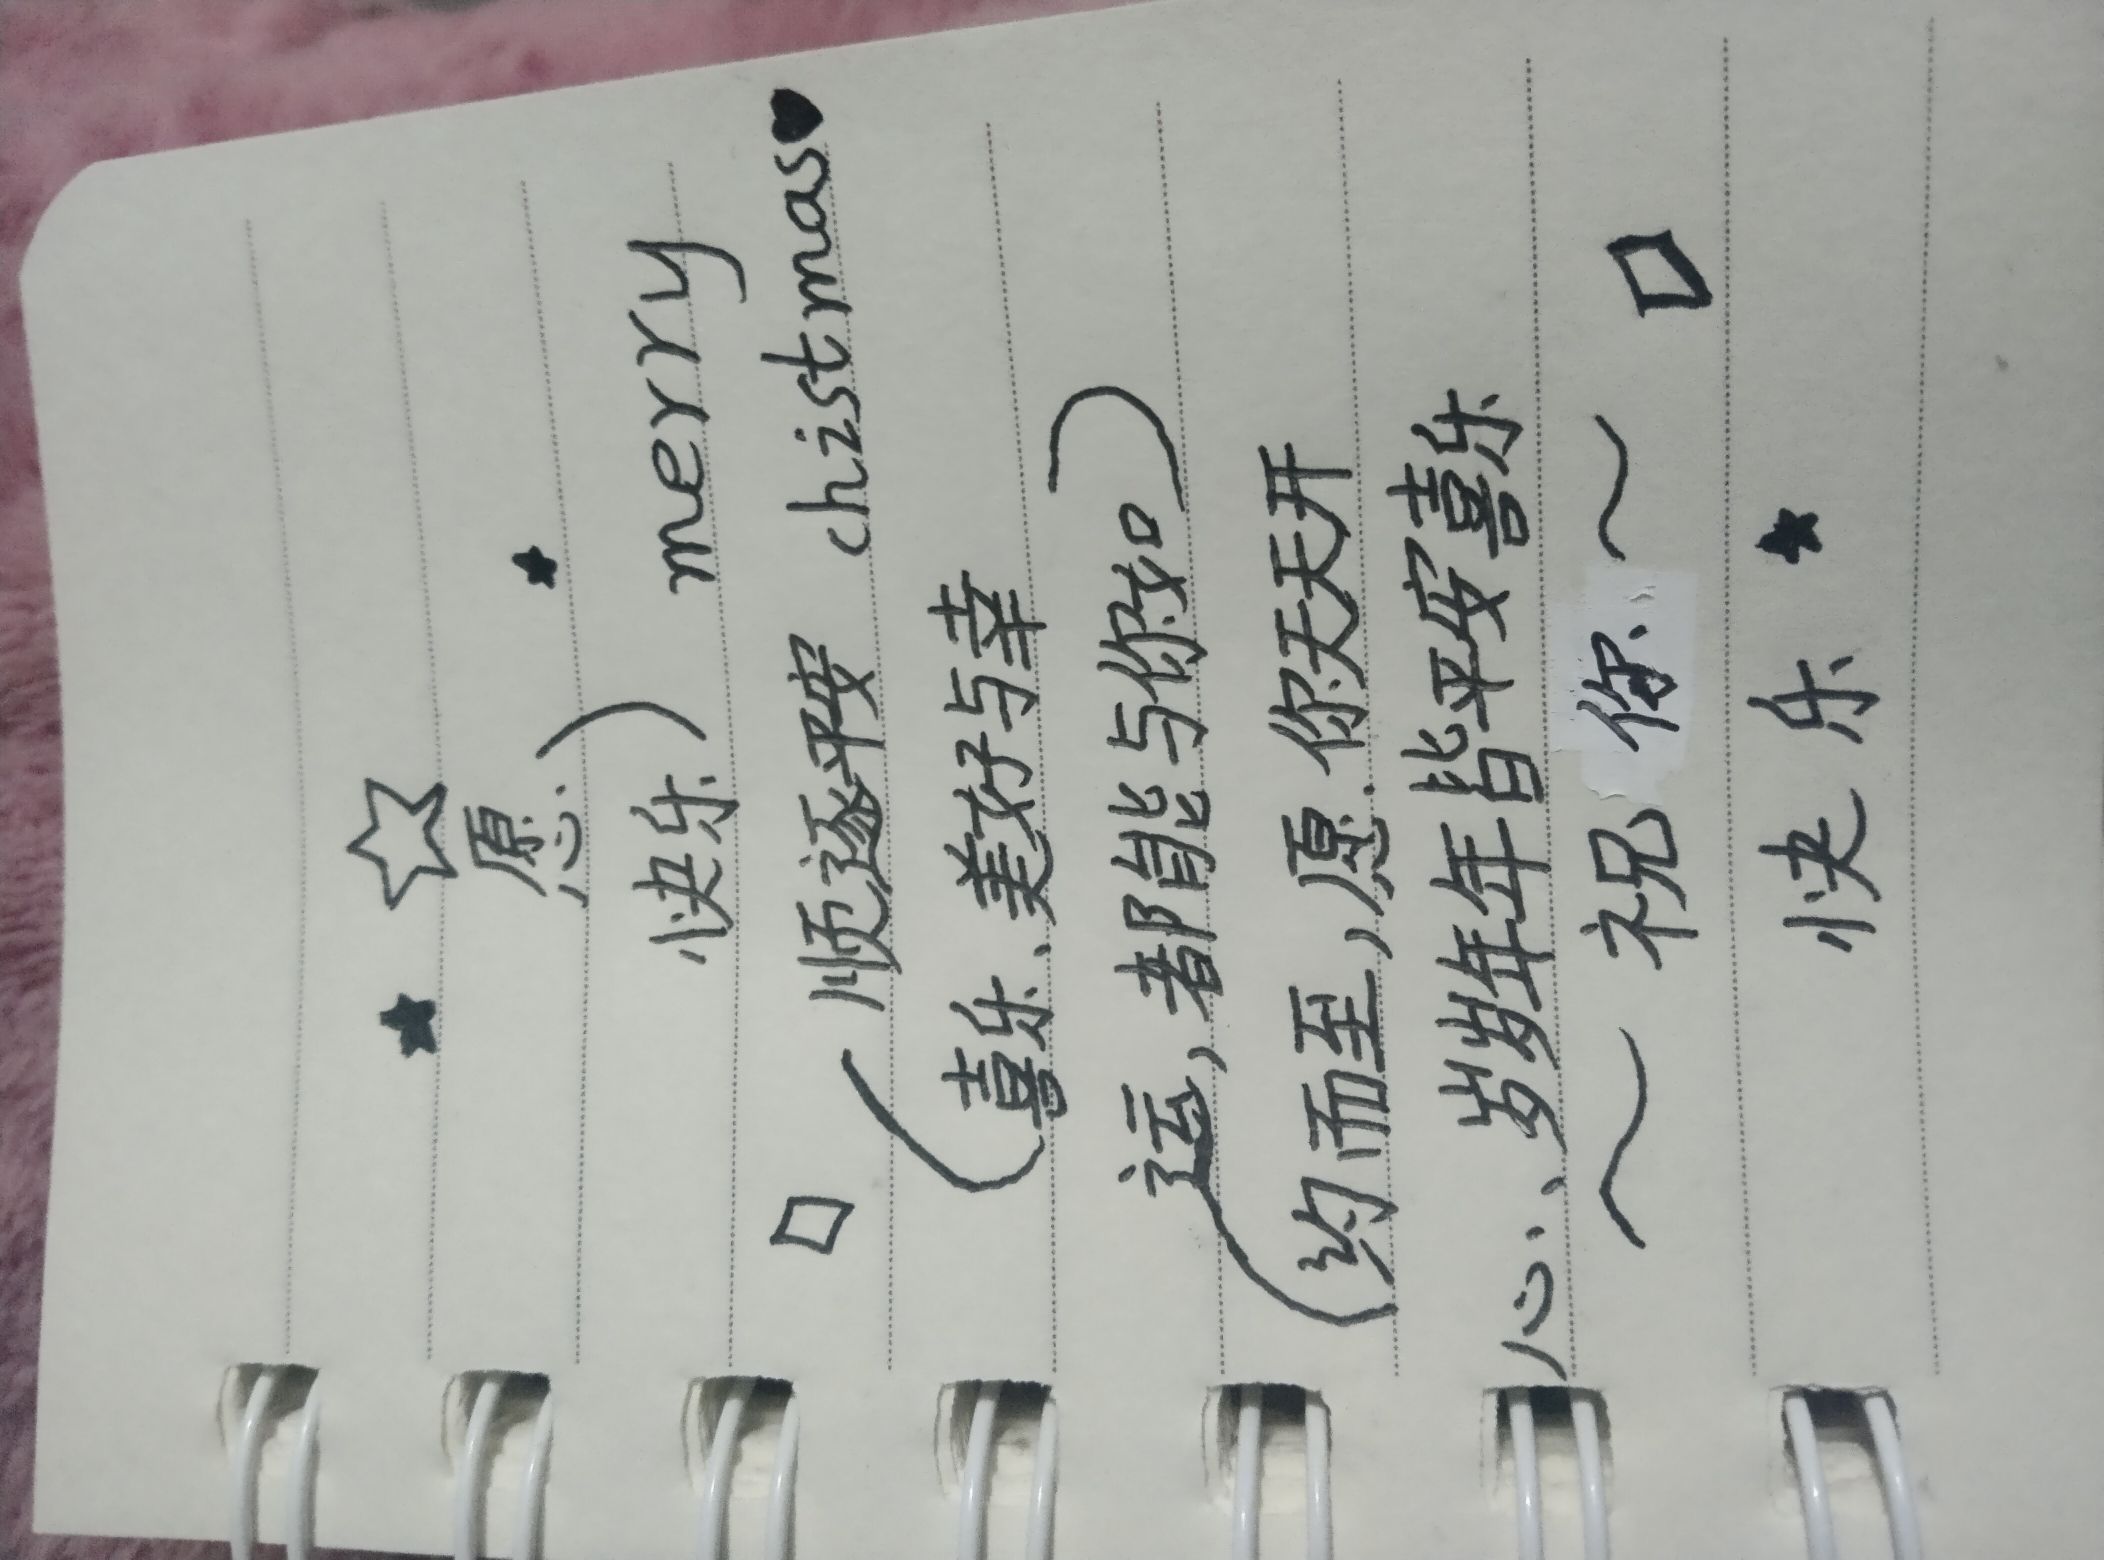 愿
快乐 merry
顺逐平安 chistmas♥
喜乐、美好与幸
运,都能与你如
约而至,愿你天天开
心、岁岁年年皆平安喜乐
~祝你~
快乐